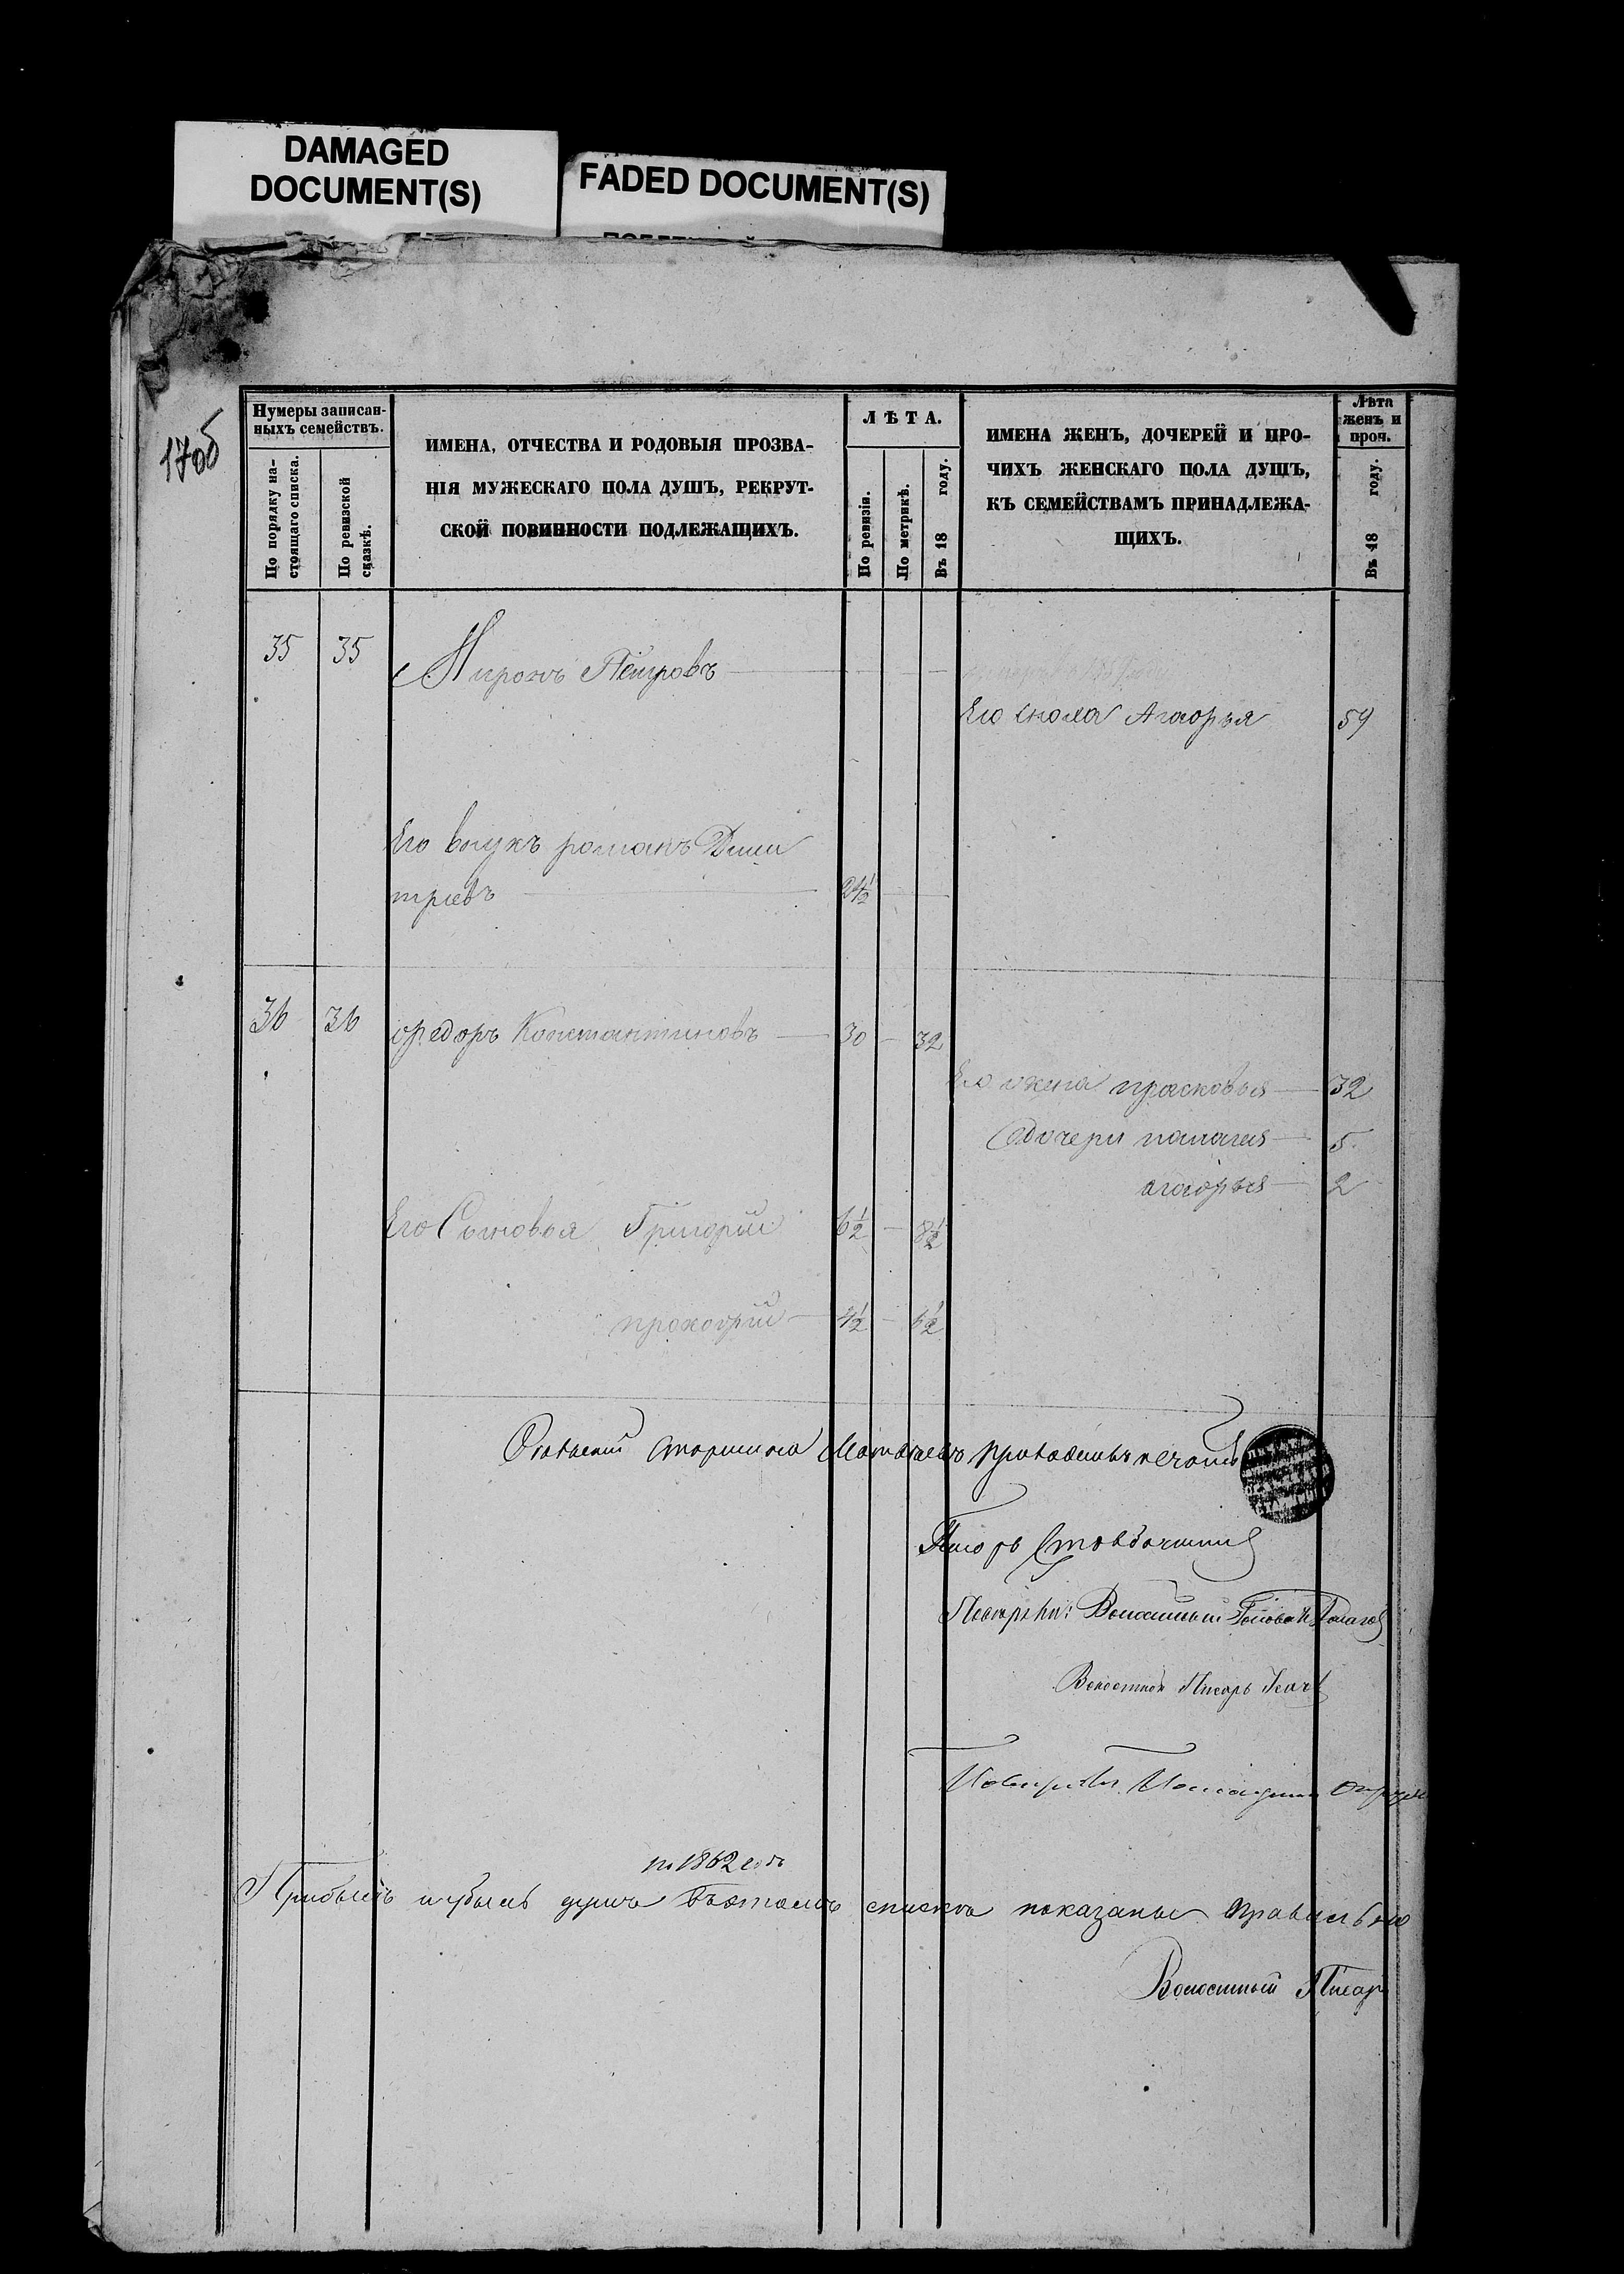 DAMAGED
DOCUMENT(S)
FADED DOCUMENT(S)
170б
Нумеры записан-
ныхъ семействъ.
По порядку на-
стоящаго списка.
По ревизской
сказкѣ.
ИМЕНА, ОТЧЕСТВА И РОДОВЫЯ ПРОЗВА-
НІЯ МУЖЕСКАГО ПОЛА ДУШЪ, РЕКРУТ-
СКОЙ ПОВИННОСТИ ПОДЛЕЖАЩИХЪ.
ЛѢТА.
По ревизіи.
По метрикѣ.
Въ 18 году.
ИМЕНА ЖЕНЪ, ДОЧЕРЕЙ И ПРО-
ЧИХЪ ЖЕНСКАГО ПОЛА ДУШЪ,
КЪ СЕМЕЙСТВАМЪ ПРИНАДЛЕЖА-
ЩИХЪ.
Лѣта
женъ и
проч.
Въ 18 году.
35 35 Миронъ Петровъ
Его сноха Агафья 59
Его внукъ романъ Дми
тріевъ 24½
36 36 федоръ Константиновъ 30 32
Его жена прасковья 32
дочери палагея 5
агафья 2
Его Сыновья Григорій 6½ 8½
прокофій 4½ 6½
старшина приложилъ печать
Писарь
Волостной Голова
Волостной Писарь
по 1862 годъ
Прибыль и убыль душъ въ этомъ спискѣ показаны правильно
Волостный Писарь